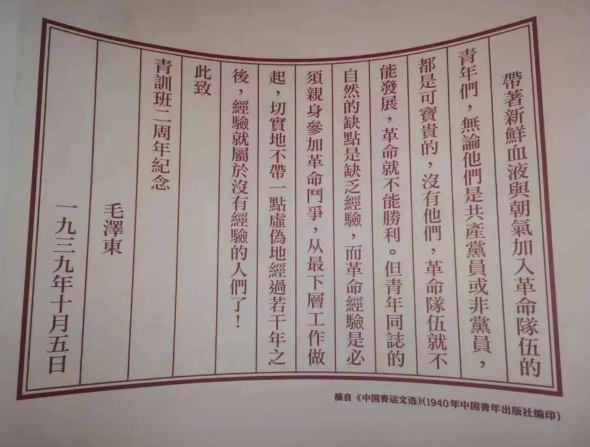 帶著新鮮血液與朝氣加入革命隊伍的
青年們，無論他們是共產黨員或非黨員，
都是可寶貴的，沒有他們，革命隊伍就不
能發展，革命就不能勝利。但青年同誌的
自然的缺點是缺乏經驗，而革命經驗是必
須親身參加革命鬥爭，从最下層工作做
起，切實地不帶一點虛偽地經過若干年之
後，經驗就屬於沒有經驗的人們了！
此致
青訓班二周年紀念
毛澤東
一九三九年十月五日
摘自《中国青运文选》(1940年中国青年出版社编印)